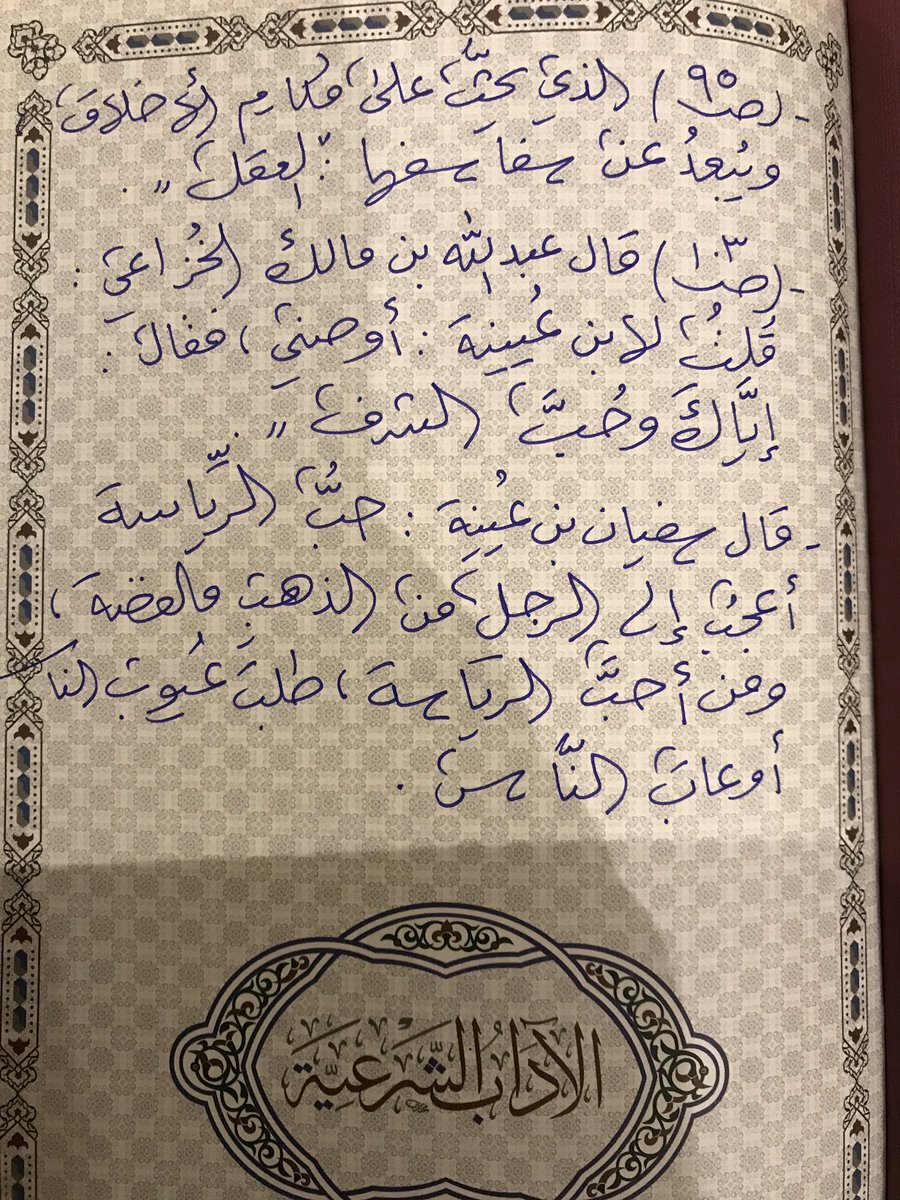 - (ص٩٥) الذي يحثّ على مكارم الأخلاق
ويُبعدُ عن سفاسفها : "العقل" .
- (ص١٠٣) قال عبد الله بن مالك الخُزاعي :
قلتُ لابن عُيينة : أوصني ، فقال :
إيَّاكَ وحُبَّ الشرف " .
- قال سفيان بن عيينة : حبُّ الرِّياسة
أعجبُ إلى الرجل من الذهب والفضة ،
ومن أحبَّ الرياسة ، طلب عيوب النا
أو عاب النَّاس .
الآدَابُ الشَّرْعِيَّة